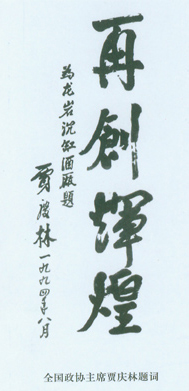 再創輝煌
为龙岩沉缸酒厰題
贾庆林一九九四年八月
全国政协主席贾庆林题词